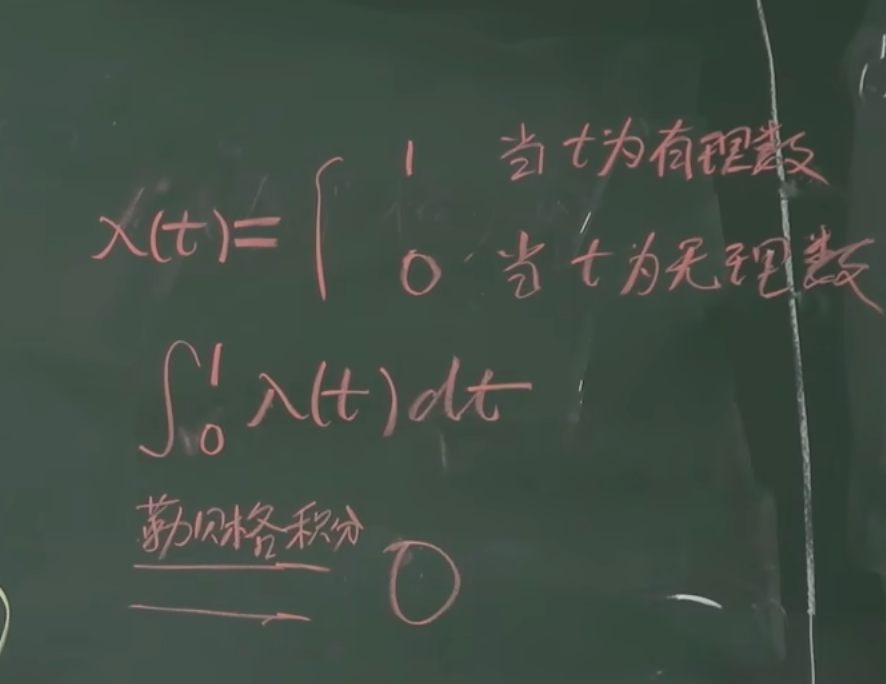 λ(t)= { 1 当 t 为有理数
0 当 t 为无理数
∫₀¹ λ(t)dt
勒贝格积分
0